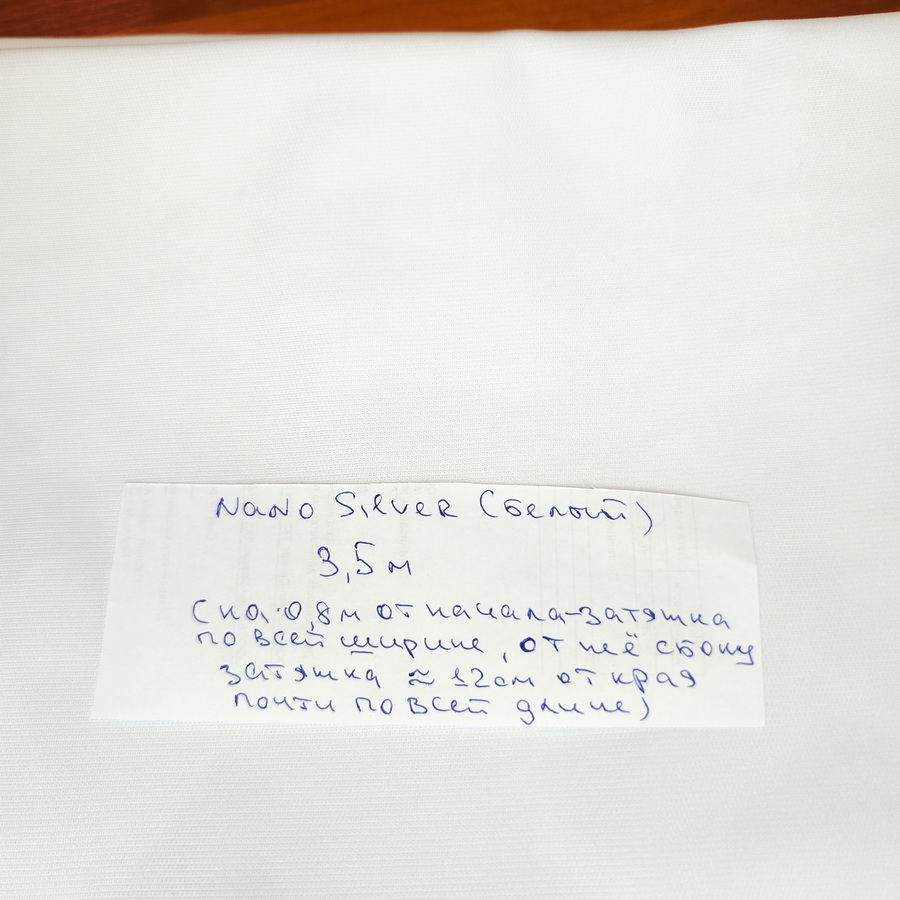 Nano Silver (белый)
3,5 м
(на 0,8м от начала-затяжка
по всей ширине, от неё сбоку
затяжка ≈ 12см от края
почти по всей длине)